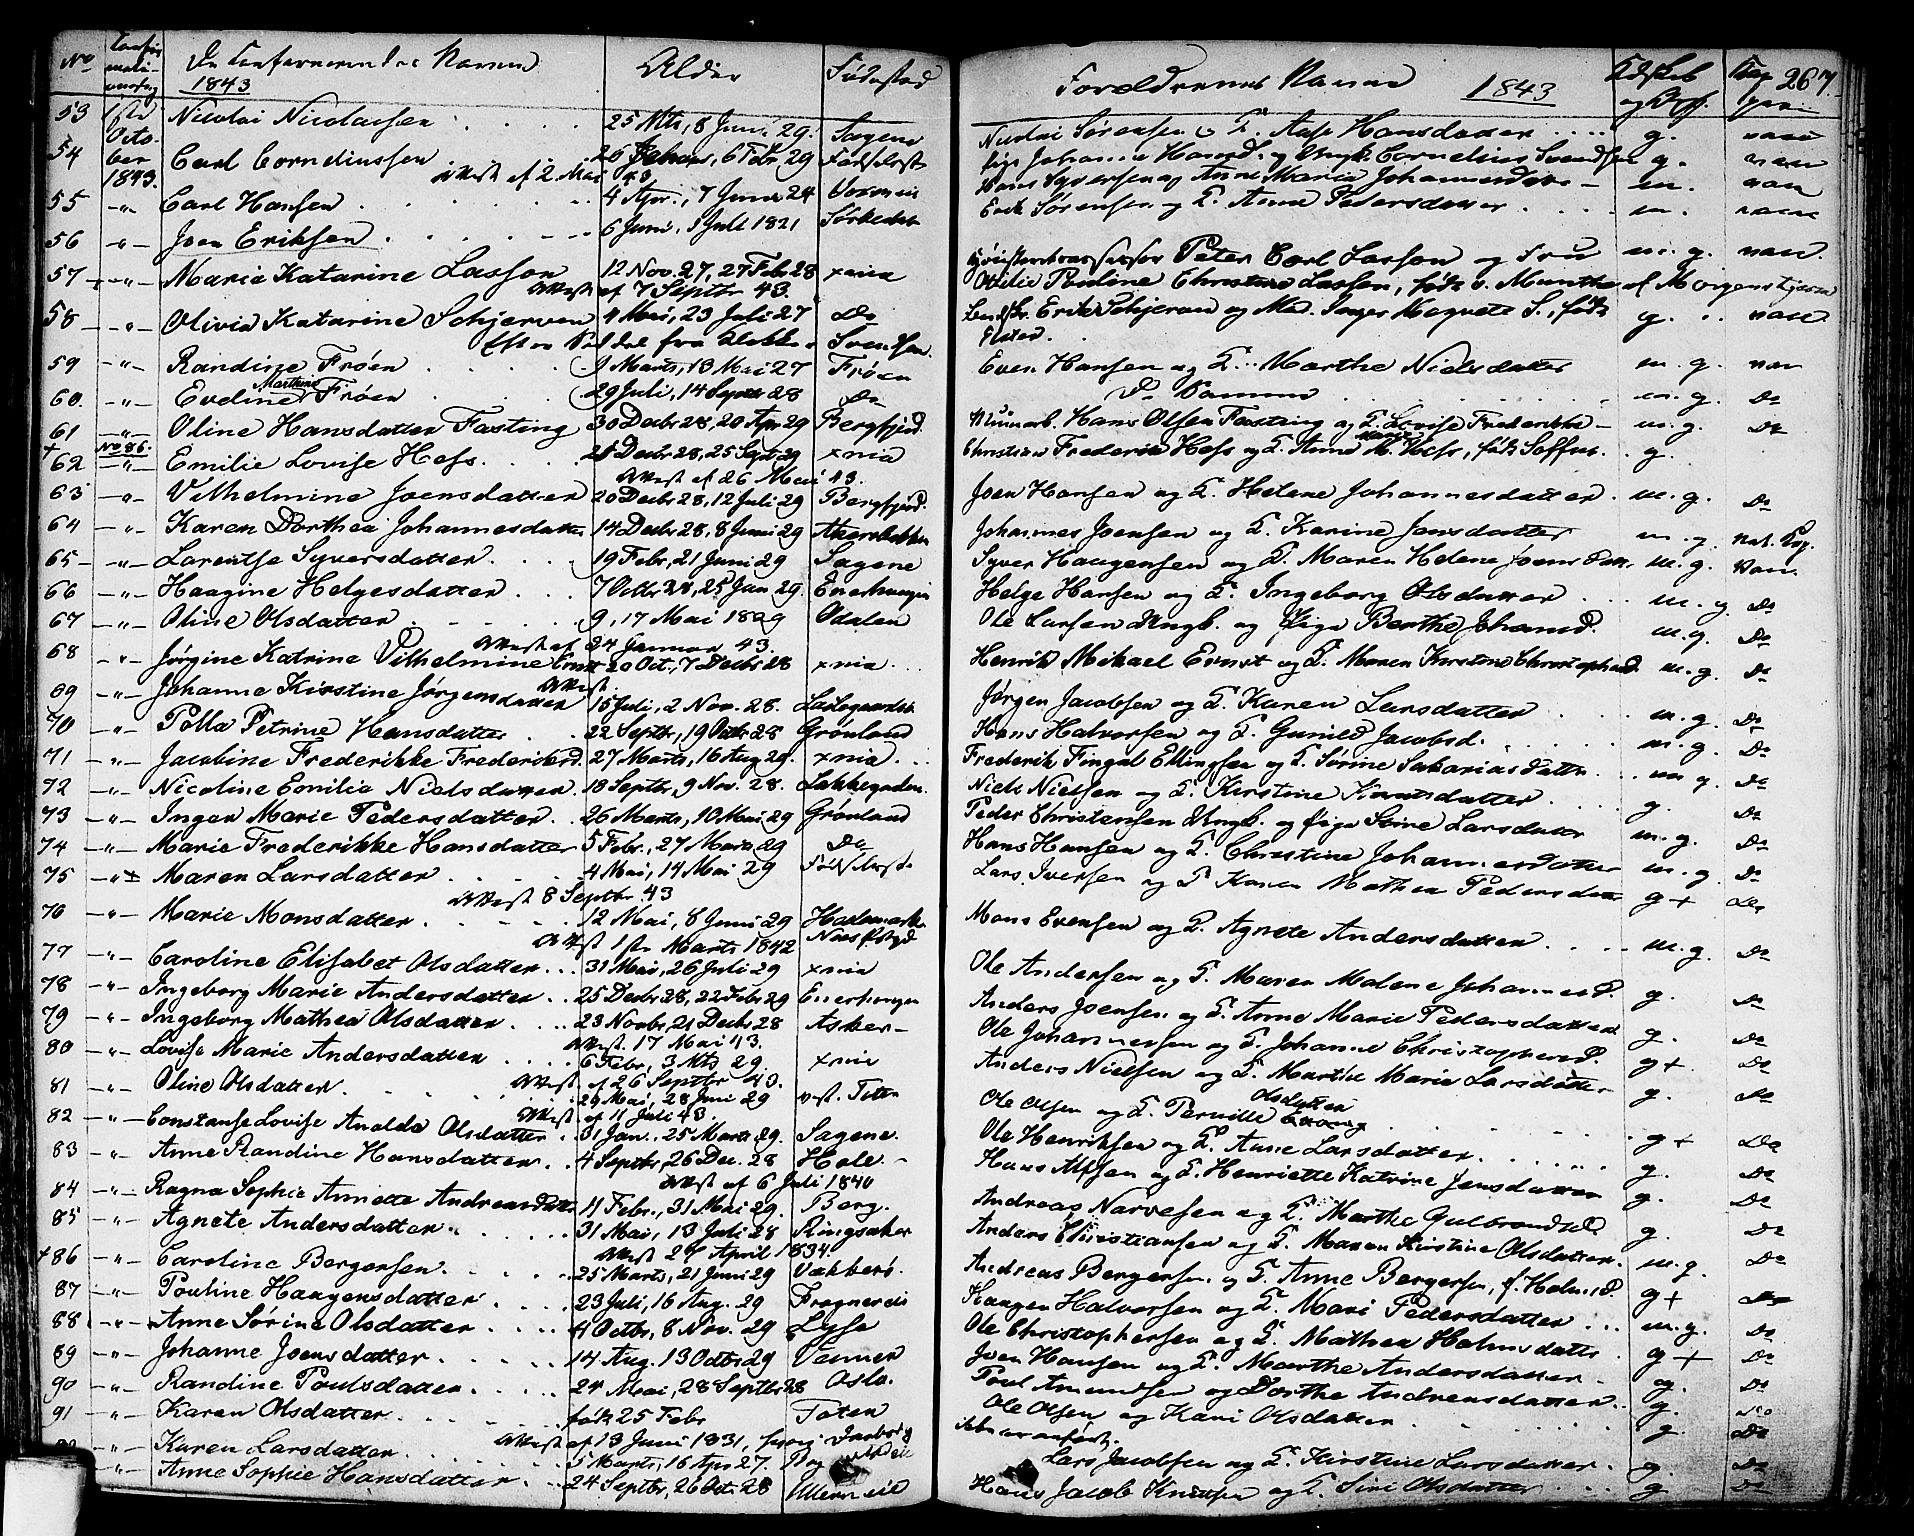 No Confirmationsdag De Confirmerendes Navne Alder Fødested
1843
53 1ste Nicolai Nicolaisen 25 Mts, 8 Juni 29. Sagene
54 October 1843. Carl Corneliussen 6 Febr. 29 Fødselsst
Attest af 2 Mai 43
55 -"- Carl Hansen 4 Apr., 7 Juni 24
56 -"- Joen Eriksen 6 Juni, 1 Juli 1821 Sørkedal
57 -"- Marie Katarine Lasson 12 Nov. 27, 27 Feb 28 xnia
Attest af 7 Septbr 43.
58 -"- Olivia Katarine Schjerven 4 Mai, 23 Juli 27 Do
fra Klokker Svendsen.
59 -"- Randine Frøen 9 Marts, 13 Mai 27 Frøen
60. -"- Evdine Marthine Frøen 29 Juli, 14 Septr 28 Do
61 -"- Oline Hansdatter Fasting 30 Decbr 28, 20 Apr 29 Bergfjerd.
+ No 86.
62 -"- Emilie Lovise Hess. Decbr 28, 25 Sept 29 xnia
Attest af 26 Mai 43.
63 -"- Vilhelmine Joensdatter 20 Decbr 28, 12 Juli 29 Bergfjerd.
64 -"- Karen Dorthea Johannesdatter 14 Decbr 28, 8 Juni 29 Akersbakken
65 -"- Larentse Syversdatter. 19 Febr, 21 Juni 29 Sagene
66 -"- Haagine Helgesdatter 7 Octbr 28, 25 Jan 29. Enerhaugen
67 -"- Oline Olsdatter 9, 17 Mai 1829 Odalen
Attest af 24 Januar 43.
68 -"- Jørgine Katrine Vilhelmine Ernst 20 Oct., 7 Decbr 28 xnia
Attest.
69 -"- Johanne Kirstine Jørgensdatter 15 Juli, 2 Nov. 28.
70 -"- Polla Petrine Hansdatter 22 Septbr, 19 Octbr 28 Grønland
71 -"- Jacobine Frederikke Frederiksd. 27 Marts, 16 Aug 29. xnia
72 -"- Nicoline Emilie Nielsdatter 18 Septbr, 9 Nov. 28. Lakkegaden.
73 -"- Inger Marie Pedersdatter 26 Marts, 10 Mai 29 Grønland
74 -"- Marie Frederikke Hansdatter 5 Febr., 27 Marts 29 Do
75 -"- Maren Larsdatter 4 Mai, 14 Mai 29
Attest 8 Septbr 43
76 -"- Marie Monsdatter 12 Mai, 8 Juni 29 Hedemarken
Attest 1ste Marts 1842 Næs
77 -"- Caroline Elisabet Olsdatter 31 Mai, 26 Juli 29 xnia
78 -"- Ingeborg Marie Andersdatter 25 Decbr 28, 22 Febr 29 Enerhaugen
79 -"- Ingeborg Mathea Olsdatter 23 Novbr, 21 Decbr 28 Asker-
Attest. 17 Mai 43.
80 -"- Lovise Marie Andersdatter 6 Febr, 3 Mts 29 xnia
Attest af 26 Septbr 43.
81 -"- Oline Olsdatter 29 Mai, 28 Juni 29 vest. Toten
Attest af 11 Juli 43.
82 -"- Constanse Lovise Analda Olsdatter 31 Jan. 25 Marts 29. Sagene.
83 -"- Anne Randine Hansdatter 4 Septbr, 26 Dec. 28 Hole -
Attest af 6 Juli 1840
84 -"- Ragna Sophie Annette Andreasdatter 11 Febr., 31 Mai 29. Berg.
85 -"- Agnete Andersdatter 31 Mai, 13 Juli 28 Ringsaker
Attest 29 April 1834.
+86 -"- Caroline Bergersen 25 Marts, 21 Juni 29 Vækkerø.
87 -"- Pouline Haagensdatter 23 Juli, 16 Aug. 29 Frognerveie
88 -"- Anne Sørine Olsdatter 4 Octbr, 8 Nov. 29 Lysse
89 -"- Johanne Joensdatter 14 Aug. 13 Octbr 29 Vammen
90 -"- Randine Poulsdatter 24 Mai, 28 Septbr 28 Oslo.
91 -"- Karen Olsdatter født 25 Febr Toten
Attest af 13 Juni 1831,
-"- Karen Larsdatter 5 Marts, 16 Apr 27.
-"- Anne Sophie Hansdatter 24 Septbr, 26 Octbr 28 Ullernveie
Forældrenes Navne 1843 267.
Nicolai Sørensen og H. Anne Hansdatter g. vacc
Pige Johanne Hansd. og Ungk. Cornelius Svendsen g. vacc
Hans Syversen og Anne Maria Johannesdatter - m. vacc
Erik Sørensen og H. Anne Pedersdatter m. vacc
Peter Carl Lasson og Fru m. g. vacc.
Otilie Pouline Christine Lasson, født v. Munthe af Morgenstjerne
Erik Schjerven og Mad. Inger Margrete S., født g. vacc.
Even Hansen og H. Marthe Nielsdatter m. g. vac
De Samme m. g. Do
Hans Olsen Fasting og H. Lovise Frederikke - m. g. Do
Christian Frederik Hess og H. Anne M. Hess, født g.
Joen Hansen og H. Helene Johannesdatter m. g. Do
Johannes Joensen og H. Karine Jensdatter m. g. nat. Kop.
Syver Haugensen og H. Maren Helene Joensdatt. m. g. Vac.
Helge Hansen og H. Ingeborg Olsdatter m. g. Do
Ole Larsen Ungk. og Pige Berthe Johansd. m. g. Do
Henrik Mikael Ernst og H. Maren Kirstine Christophersd. m. g. Do
Jørgen Jacobsen og H. Karen Larsdatter m. g. Do
Hans Halvorsen og H. Gunild Jacobsd. m. g. Do
Frederik Fingal Ellingsen og H. Sørine Sakariasdatter m g. Do
Niels Nielsen og H. Kirstine Knutsdatter g. Do
Peder Christensen Ungk. og Pige Sørine Larsdatter m. g. Do
Hans Hansen og H. Christine Johannesdatter m. g. Do
Lars Iversen og H. Karen Mathea Pedersdatter g + Do
Mons Evensen og H. Agnete Andersdatter m. g. Do
Ole Andersen og H. Maren Malene Johannesd. g. Do
Anders Joensen og H. Anne Marie Pedersdatter g. Do
Ole Johannessen og H. Johanne Christophersd. g +. Do
Anders Nielsen og H. Marthe Marie Larsdatter g. Do
Ole Olsen og H. Pernille Olsdatter
Ole Henriksen og H. Anne Larsdatter g + Do
Hans Alfsen og H. Henriette Katrine Jensdatter g. Do
Andreas Narvesen og H. Marthe Gulbrandsd. g. Do
Anders Christiansen og H. Maren Kirstine Olsdatter. g. Do
Andreas Bergersen og H. Anne Bergersen, f. Holmsd. m. g. Do
Haagen Halvorsen og H. Mari Pedersdatter g + Do
Ole Christophersen og H. Mathea Holmsdatter m. g. Do
Joen Hansen og H. Marthe Andersdatter g + Do
Poul Amundsen og Dorthe Andreasdatter g. Do
Ole Olsen og Kari Olsdatter g. Do
ikke anført.
Lars Jacobsen og H. Kirstine Larsdatter g. Do
Hans Jacob Knutsen og H. Siri Olsdatter g. Do